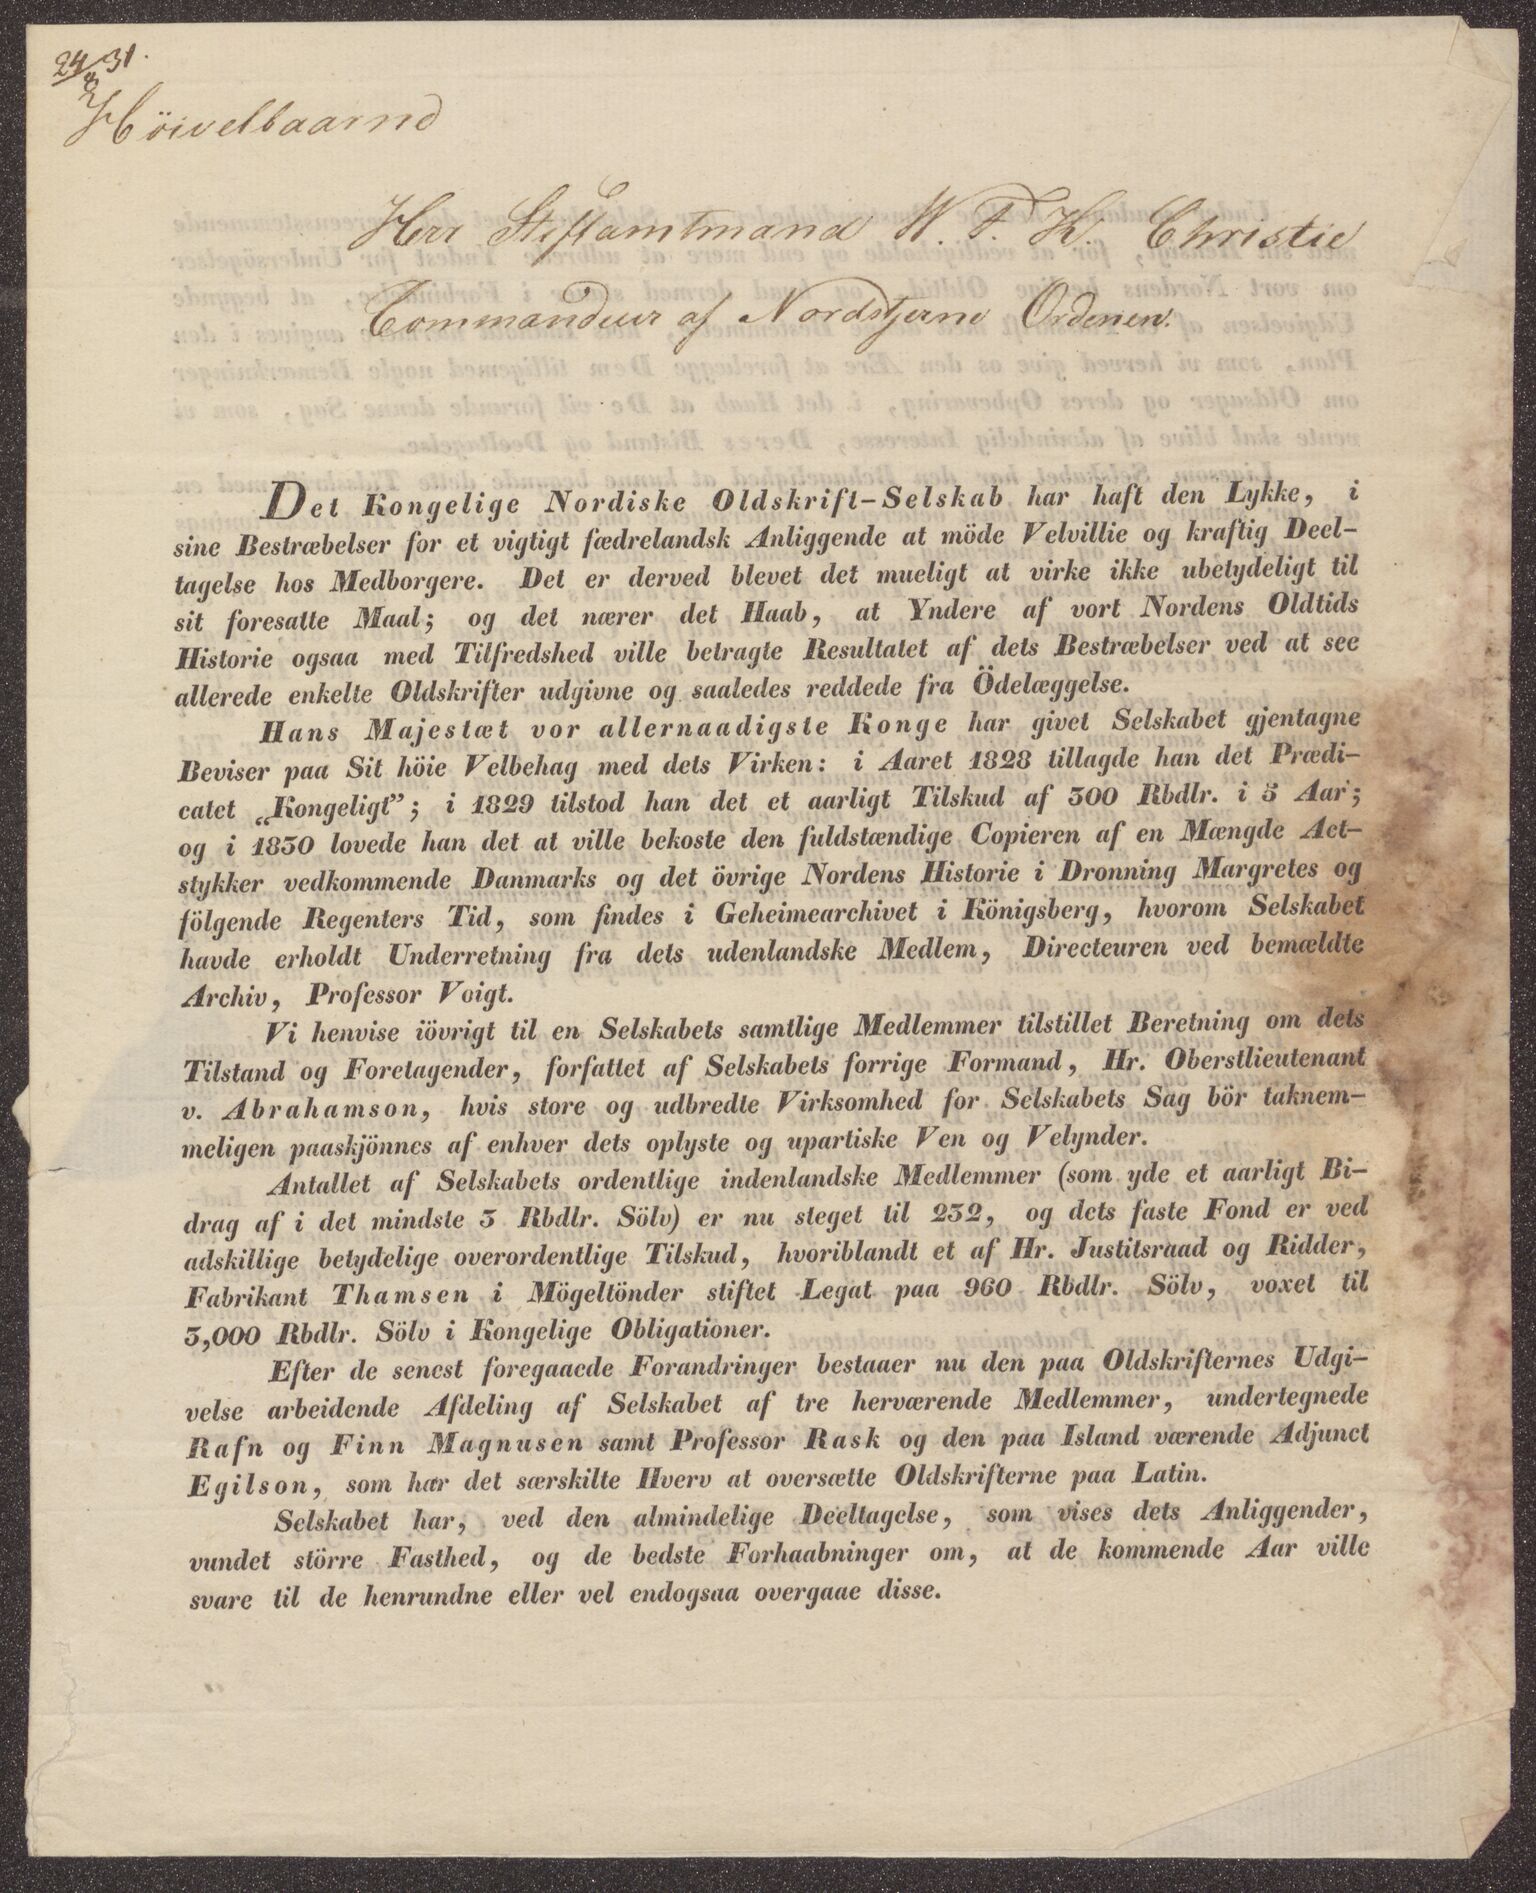 24/8 31.
Höivelbaarne
Herr Stiftamtmand W. F. K. Christie
Commandeur af Nordstjerne Ordenen.
Det Kongelige Nordiske Oldskrift-Selskab har haft den Lykke, i
sine Bestræbelser for et vigtigt fædrelandsk Anliggende at möde Velvillie og kraftig Deel-
tagelse hos Medborgere. Det er derved blevet det mueligt at virke ikke ubetydeligt til
sit foresatte Maal; og det nærer det Haab, at Yndere af vort Nordens Oldtids
Historie ogsaa med Tilfredshed ville betragte Resultatet af dets Bestræbelser ved at see
allerede enkelte Oldskrifter udgivne og saaledes reddede fra Ödelæggelse.
Hans Majestæt vor allernaadigste Konge har givet Selskabet gjentagne
Beviser paa Sit höie Velbehag med dets Virken: i Aaret 1828 tillagde han det Prædi-
catet „Kongeligt”; i 1829 tilstod han det et aarligt Tilskud af 300 Rbdlr. i 5 Aar;
og i 1830 lovede han det at ville bekoste den fuldstændige Copieren af en Mængde Act-
stykker vedkommende Danmarks og det övrige Nordens Historie i Dronning Margretes og
fölgende Regenters Tid, som findes i Geheimearchivet i Königsberg, hvorom Selskabet
havde erholdt Underretning fra dets udenlandske Medlem, Directeuren ved bemældte
Archiv, Professor Voigt.
Vi henvise iövrigt til en Selskabets samtlige Medlemmer tilstillet Beretning om dets
Tilstand og Foretagender, forfattet af Selskabets forrige Formand, Hr. Oberstlieutenant
v. Abrahamson, hvis store og udbredte Virksomhed for Selskabets Sag bör taknem-
meligen paaskjönnes af enhver dets oplyste og upartiske Ven og Velynder.
Antallet af Selskabets ordentlige indenlandske Medlemmer (som yde et aarligt Bi-
drag af i det mindste 3 Rbdlr. Sölv) er nu steget til 232, og dets faste Fond er ved
adskillige betydelige overordentlige Tilskud, hvoriblandt et af Hr. Justitsraad og Ridder,
Fabrikant Thamsen i Mögeltönder stiftet Legat paa 960 Rbdlr. Sölv, voxet til
3,000 Rbdlr. Sölv i Kongelige Obligationer.
Efter de senest foregaaede Forandringer bestaaer nu den paa Oldskrifternes Udgi-
velse arbeidende Afdeling af Selskabet af tre herværende Medlemmer, undertegnede
Rafn og Finn Magnusen samt Professor Rask og den paa Island værende Adjunct
Egilson, som har det særskilte Hverv at oversætte Oldskrifterne paa Latin.
Selskabet har, ved den almindelige Deeltagelse, som vises dets Anliggender,
vundet större Fasthed, og de bedste Forhaabninger om, at de kommende Aar ville
svare til de henrundne eller vel endogsaa overgaae disse.